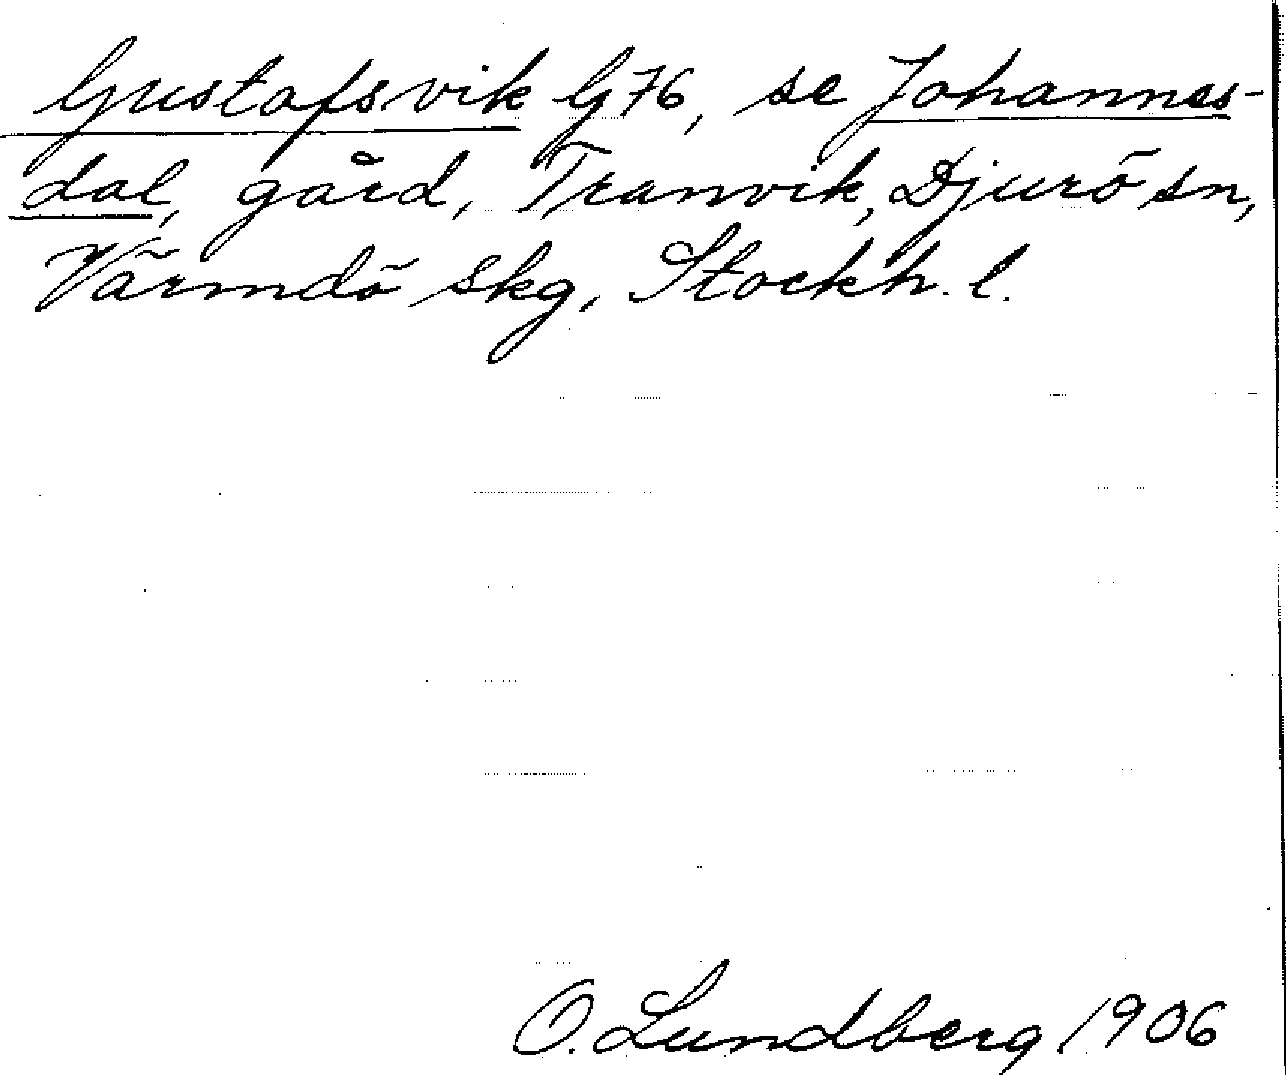 Gustafsvik G76, se Johannes-
dal, gård, Tranvik, Djurö sn,
Värmdö skg, Stockh. l.
O. Lundberg 1906